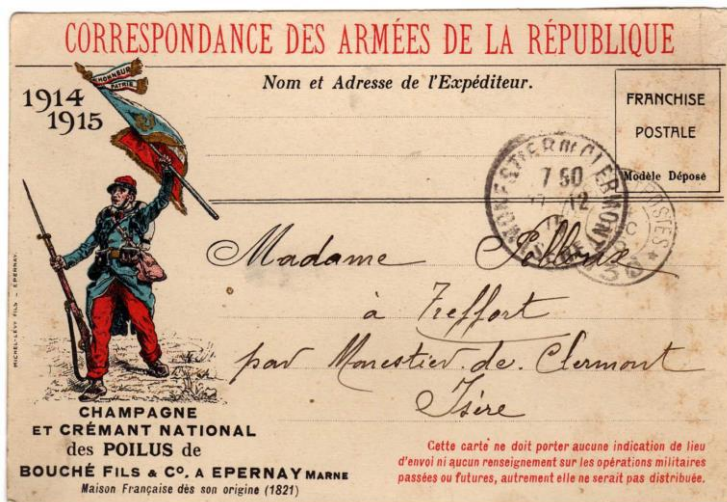 CORRESPONDANCE DES ARMÉES DE LA RÉPUBLIQUE
Nom et Adresse de l'Expéditeur.
HONNEUR
PATRIE
1914
1915
FRANCHISE
POSTALE
Modèle Déposé
MONESTIER DE CLERMONT
7 50
12
ISÈRE
POSTES
Madame
à Treffort
par Monestier. de. Clermont
Isère
MICHEL-LÉVY FILS - EPERNAY.
CHAMPAGNE
ET CRÉMANT NATIONAL
des POILUS de
BOUCHÉ FILS & Cº. A EPERNAY MARNE
Maison Française dès son origine (1821)
Cette carte ne doit porter aucune indication de lieu
d'envoi ni aucun renseignement sur les opérations militaires
passées ou futures, autrement elle ne serait pas distribuée.